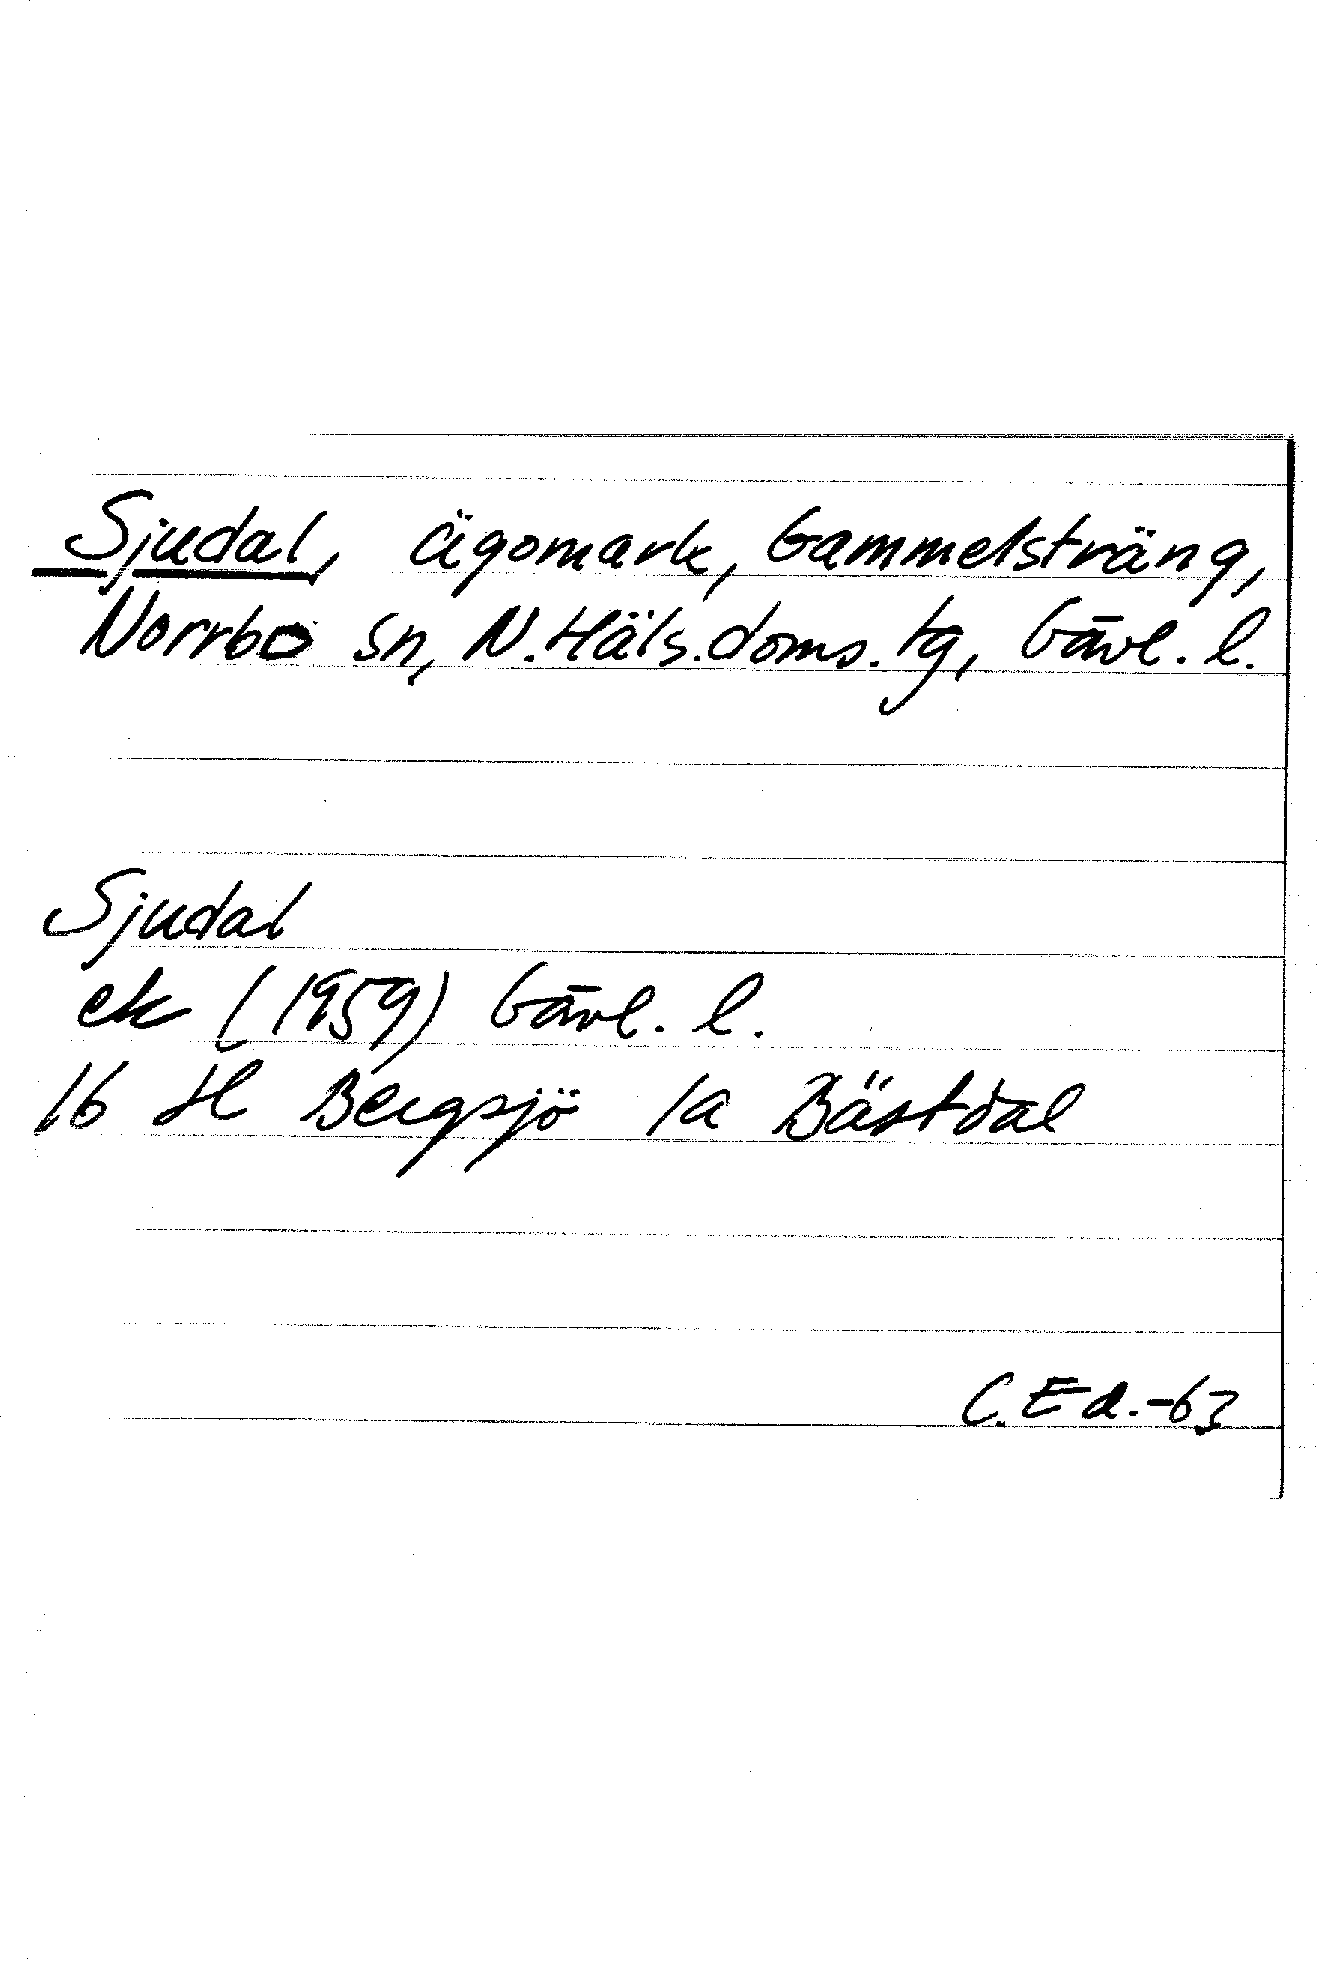 Sjudal, ägomark, Gammelsträng,
Norrbo sn, N.Häls.doms.tg, Gävl. l.
Sjudal
ek (1959) Gävl. l.
16 H Bergsjö 1a Bästdal
C.Ed.-63